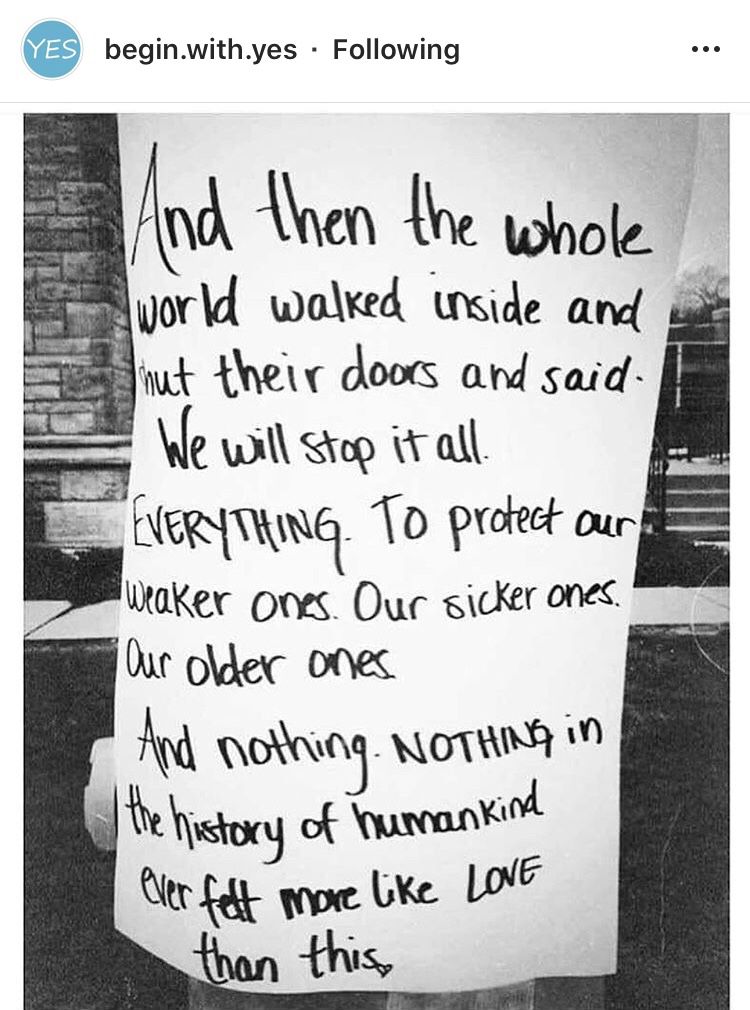 YES
begin.with.yes · Following
And then the whole
world walked inside and
shut their doors and said.
We will stop it all.
EVERYTHING. To protect our
weaker ones. Our sicker ones.
Our older ones.
And nothing. NOTHING in
the history of humankind
ever felt more like LOVE
than this.